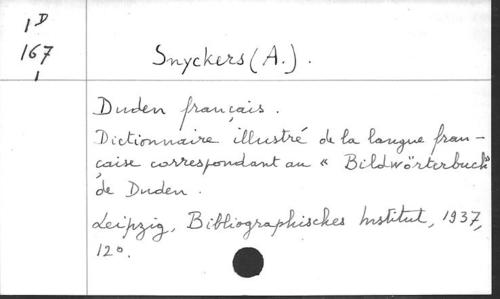 1D
167
1
Snyckers (A.).
Duden français.
Dictionnaire illustré de la langue fran-
çaise correspondant au « Bildwörterbuch »
de Duden.
Leipzig, Bibliographisches Institut, 1937,
12o.